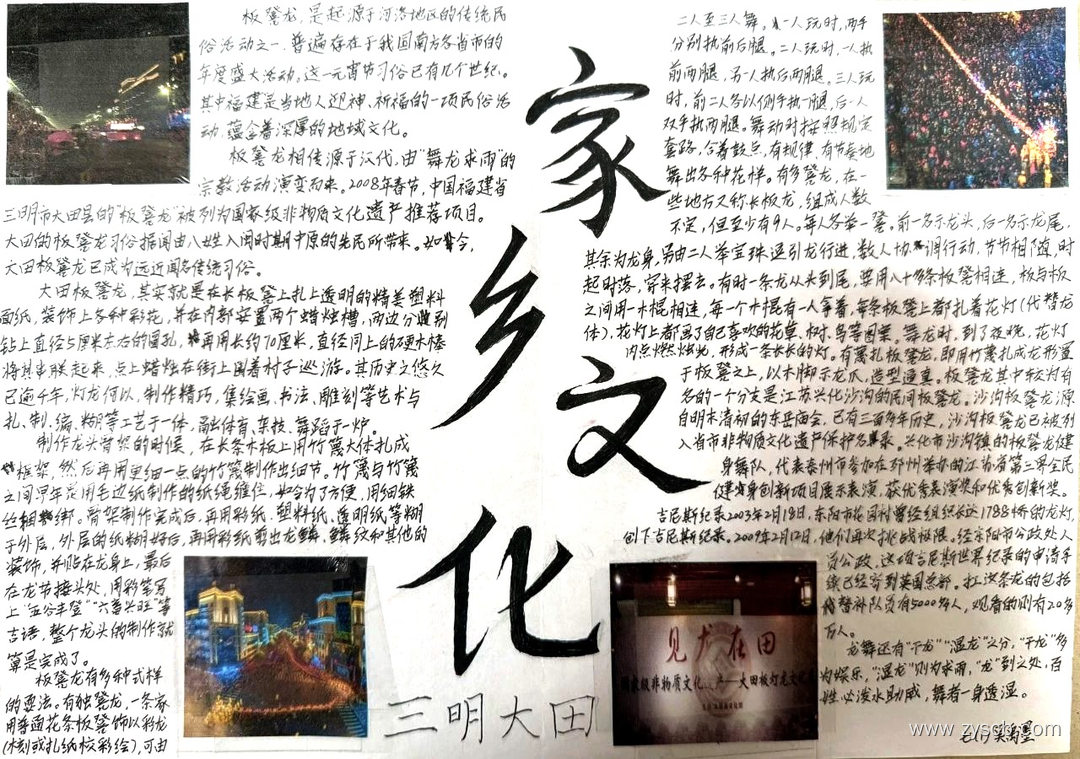 家乡文化
三明大田
板凳龙,是起源于河洛地区的传统民
俗活动之一,普遍存在于我国南方各省市的
年度盛大活动。这一元宵节习俗已有几个世纪。
其中福建是当地人迎神、祈福的一项民俗活
动,蕴含着深厚的地域文化。
板凳龙相传源于汉代,由“舞龙求雨”的
宗教活动演变而来。2008年春节,中国福建省
三明市大田县的“板凳龙”被列为国家级非物质文化遗产推荐项目。
大田的板凳龙习俗据闻由八姓入闽时期中原的先民所带来。如今,
大田板凳龙已成为远近闻名传统习俗。
大田板凳龙,其实就是在长板凳上扎上透明的精美塑料
画纸,装饰上各种彩花,并在内部安置两个蜡烛槽,两边分别
钻上直径5厘米左右的圆孔,再用长约70厘米,直径同上的硬木棒
将其串联起来,点上蜡烛在街上围着村子巡游。其历史之悠久
已逾千年,灯龙何以,制作精巧,集绘画、书法、雕刻等艺术与
扎、制、编、糊等工艺于一体,融体育、杂技、舞蹈于一炉。
制作龙头骨架的时候,在长条木板上用竹篾大体扎成
框架,然后再用更细一点的竹篾制作出细节。竹篾与竹篾
之间早年是用毛边纸制作的纸绳缠住,如今为了方便,用细铁
丝捆绑。骨架制作完成后,再用彩纸、塑料纸、透明纸等糊
于外层,外层的纸糊好后,再用彩纸剪出龙鳞、鳞纹和其他的
装饰,并贴在龙身上,最后
在龙节接头处,用彩笔写
上“五谷丰登”“六畜兴旺”等
吉语,整个龙头的制作就
算是完成了。
板凳龙有多种式样
的耍法。有独凳龙,一条家
用普通花条板凳饰以彩龙
(木刻或扎纸校彩绘),可由
二人至三人舞。一人玩时,两手
分别执前后腿。二人玩时,一人执
前两腿,另一人执后两腿。三人玩
时,前二人各以侧手执一腿,后一人
双手执两腿。舞动时按照规定
套路,合着鼓点,有规律,有节奏地
舞出各种花样。有多凳龙,在一
些地方又称长板龙,组成人数
不定,但至少有9人,每人各举一凳。前一名示龙头,后一名示龙尾,
其余为龙身,另由二人举宝珠逗引龙行进,数人协调行动,节节相随,时
起时落,穿来摆去。有时一条龙从头到尾,要用八十多条板凳相连,板与板
之间用一木棍相连,每一个木棍有一人拿着,每条板凳上都扎着花灯(代替龙
体),花灯上都画了自己喜欢的花草、树、鸟等图案。舞龙时,到了夜晚,花灯
内点燃烛光,形成一条长长的灯。有篾扎板凳龙,即用竹篾扎成龙形置
于板凳之上,以木脚示龙爪,造型逼真。板凳龙其中较为有
名的一个分支是江苏兴化沙沟的民间板凳龙。沙沟板凳龙源
自明末清初的东岳庙会,已有三百多年历史,沙沟板凳龙已被列
入省市非物质文化遗产保护名录。兴化市沙沟镇的板凳龙健
身舞队,代表泰州市参加在邳州举办的江苏省第三届全民
健身创新项目展示表演,获优秀表演奖和优秀创新奖。
吉尼斯纪录2003年2月18日,东阳市花园村曾经组织长达1788桥的龙灯,
创下吉尼斯纪录。2009年2月12日,他们再次挑战极限。经东阳市公政处人
员公政,这项吉尼斯世界纪录的申请手
续已经寄到英国总部。扛这条龙的包括
替补队员有5000多人,观看的则有20多
万人。
龙舞还有“干龙”“湿龙”之分,“干龙”多
为娱乐,“湿龙”则为求雨,“龙”到之处,百
姓必泼水助威,舞者一身透湿。
见龙在田
国家级非物质文化遗产——大田板灯龙文化
www.zyscb.com